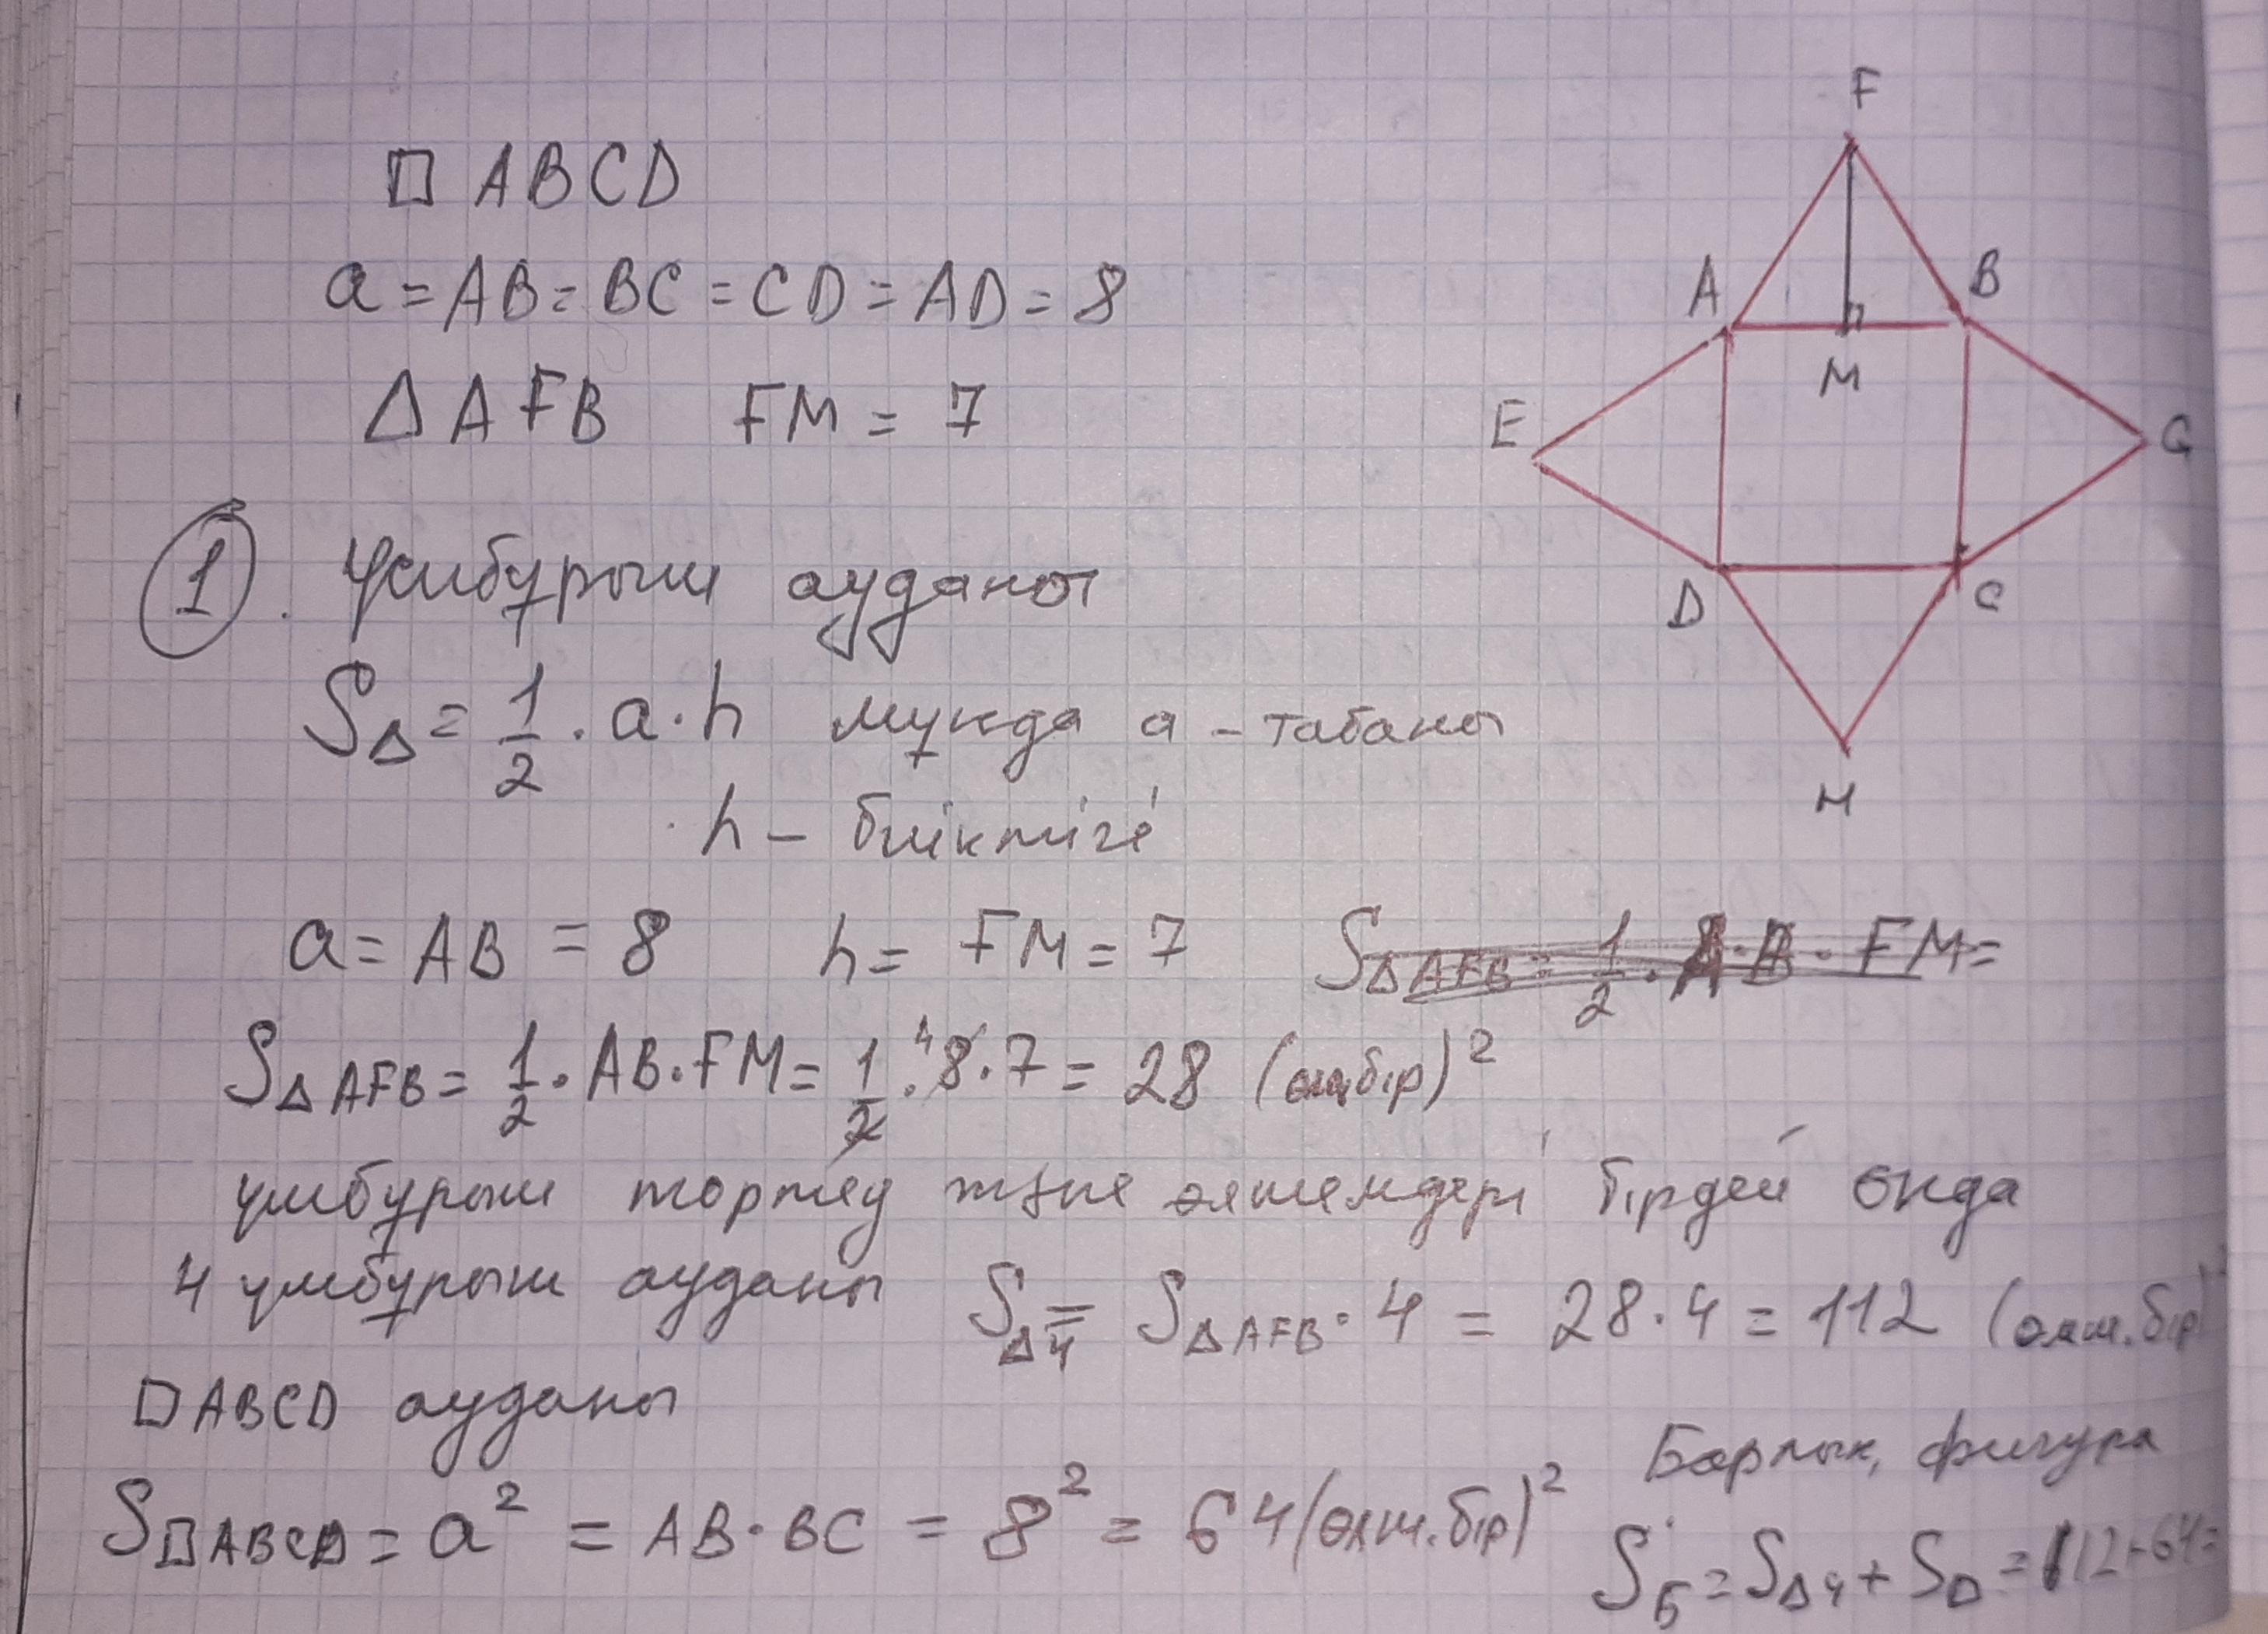 □ ABCD
a = AB = BC = CD = AD = 8
Δ AFB FM = 7
F
A
B
M
E
G
D
C
H
1. Үшбұрыш ауданы
S_Δ = 1/2 · a · h мұнда a – табаны
h – биіктігі
a = AB = 8 h = FM = 7 S_ΔAFB = 1/2 · A·B · FM =
S_ΔAFB = 1/2 · AB · FM = 1/2 · 8 · 7 = 28 (өлш.бір)²
4
үшбұрыш төртеу және өлшемдері бірдей онда
4 үшбұрыш ауданы S_Δ4 = S_ΔAFB · 4 = 28 · 4 = 112 (өлш.бір)²
□ABCD ауданы
S_□ABCD = a² = AB · BC = 8² = 64 (өлш.бір)²
Барлық фигура
S_Б = S_Δ4 + S_□ = 112+64=